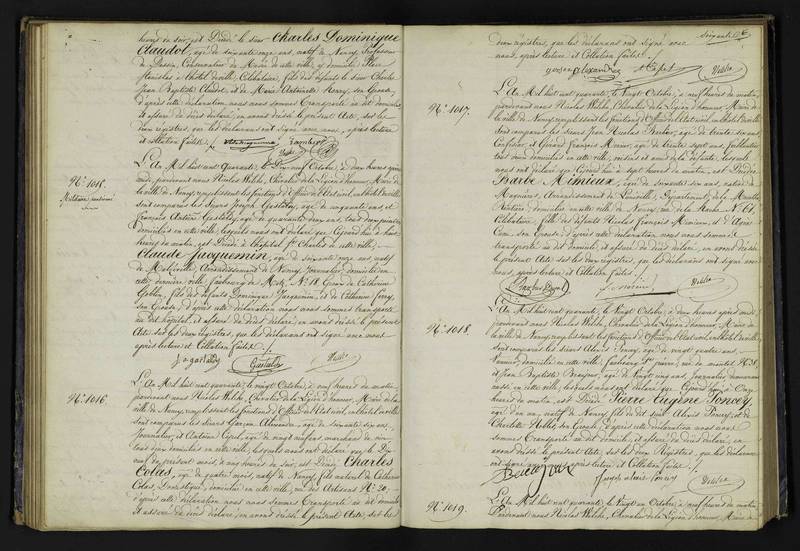 heures du soir est Décédé le sieur Charles Dominique
Claudot, agé de soixante onze ans, natif de Nancy, Professeur
de Dessin, Conservateur du Musée de cette ville, y domicilié, Place
Stanislas à l'hôtel de ville, Célibataire, fils des défunts le sieur Charles
Jean Baptiste Claudot, et de Marie Antoinette Henry, son Epouse,
d'après cette déclaration nous nous sommes Transporté au dit domicile,
et assuré du décès déclaré, en avons dressé le présent Acte, sur les
deux registres, que les déclarans ont signé avec nous, après lecture
et collation faites.
Welche
No. 1015.
L'An Mil huit cent Quarante, le Dix-neuf Octobre, à deux heures après
midi, pardevant nous Nicolas Welche, Chevalier de la Légion d'honneur, Maire de
la ville de Nancy, remplissant les fonctions d'Officier de l'Etat civil, en l'hôtel de ville
sont comparus les sieurs Joseph Gastaldy, agé de cinquante ans et
François Antoine Gastaldy, agé de quarante deux ans, tous deux
domiciliés en cette ville, lesquels nous ont déclaré que Cejourd'hui à huit
heures du matin, est Décédé à l'hôpital St. Charles de cette ville,
Claude Jacquemin, agé de soixante six ans natif
de Malzéville, Arrondissement de Nancy, Journalier, domicilié en
cette dernière ville, faubourg de Metz, No. 18, Epoux de Catherine
Goblin, fils des défunts Dominique Jacquemin, et de Catherine Ferry,
son Epouse, d'après cette déclaration nous nous sommes transporté
au dit hôpital, et assuré du décès déclaré, en avons dressé le présent
Acte sur les deux registres, que les déclarans ont signé avec nous
après lecture et Collation faites.
Gastaldy
Welche
No. 1016.
L'An Mil huit cent quarante, le vingt Octobre, à neuf heures du matin,
pardevant nous Nicolas Welche, Chevalier de la Légion d'honneur, Maire de la
ville de Nancy, remplissant les fonctions d'Officier de l'Etat civil, en l'hôtel de ville
sont comparus les sieurs Garçon Alexandre, agé de soixante six ans,
Journalier, et Antoine Capet, agé de vingt neuf ans, marchand de vin
tous deux domiciliés en cette ville, lesquels nous ont déclaré que le Dix
neuf du présent mois, à onze heures du soir, est Décédé Charles
Colas, agé de quatre mois, natif de Nancy, fils naturel de Catherine
Colas, Domestique, domiciliée en cette ville, rue des Artisans No. 20.
d'après cette déclaration nous nous sommes Transporté au dit domicile
et assuré du décès déclaré, en avons dressé le présent Acte, sur les
deux registres, que les déclarans ont signé avec
nous, après lecture et Collation faites.
Garçon Alexandre
A Capet
Welche
No. 1017.
L'An Mil huit cent quarante, le vingt Octobre, à neuf heures du matin,
pardevant nous Nicolas Welche, Chevalier de la Légion d'honneur, Maire de
la ville de Nancy, remplissant les fonctions d'Officier de l'Etat civil, en l'hôtel de ville
sont comparus les sieurs Jean Nicolas agé de trente six ans,
Confiseur, et Gérard François Mimieux, agé de trente sept ans,
tous deux domiciliés en cette ville, voisins et amis de la défunte, lesquels
nous ont déclaré que Cejourd'hui à sept heures du matin, est Décédée
Barbe Mimieux, agée de soixante dix ans, native de
Magnières, Arrondissement de Lunéville, Département de la Meurthe
Rentière, domiciliée en cette ville de Nancy, rue de la No. 61,
Célibataire, fille des défunts Nicolas François Mimieux, et d'Agnès
son Epouse, d'après cette déclaration nous nous sommes
transporté au dit domicile, et assuré du décès déclaré, en avons dressé
le présent Acte sur les deux registres, que les déclarans ont signé avec
nous, après lecture et Collation faites.
Welche
No. 1018.
L'An Mil huit cent quarante, le Vingt Octobre, à deux heures après midi,
pardevant nous Nicolas Welche, Chevalier de la Légion d'honneur, Maire de
la ville de Nancy, remplissant les fonctions d'Officier de l'Etat civil, en l'hôtel de ville
sont comparus les sieurs Alexis Poncey, agé de vingt quatre ans,
Vannier, domicilié en cette ville, faubourg St. Pierre,
et Jean Baptiste agé de vingt cinq ans, Journalier demeurant
aussi en cette ville, lesquels nous ont déclaré que Cejourd'hui à Onze
heures du matin, est Décédé Pierre Eugène Poncey,
agé d'un an, natif de Nancy, fils de dit sieur Alexis Poncey, et de
Charlotte Rollet, son Epouse, d'après cette déclaration nous nous
sommes Transporté au dit domicile, et assuré du décès déclaré, en
avons dressé le présent Acte, sur les deux Registres, que les déclarans
ont signé avec nous, après lecture et Collation faites.
Welche
No. 1019.
L'An Mil huit cent quarante, le Vingt un Octobre, à neuf heures du matin
Pardevant nous Nicolas Welche, Chevalier de la Légion d'honneur, Maire de